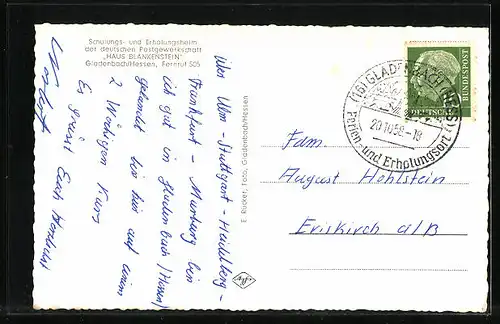 Schulungs- und Erholungsheim
der deutschen Postgewerkschaft
"HAUS BLANKENSTEIN"
Gladenbach/Hessen, Fernruf 505
über Ulm - Stuttgart - Heidelberg -
Frankfurt - Marburg bin
ich gut in Gladenbach/Hessen
gelandet bin hier auf einem
2 wöchigen Kurs
Es grüsst Euch herzlichst
E. Rücker, Foto, Gladenbach/Hessen
(16) GLADENBACH (HESS)
20.10.59-19
Ferien- und Erholungsort
DEUTSCHE BUNDESPOST
Fam.
August Hohlstein
Eriskirch a/B